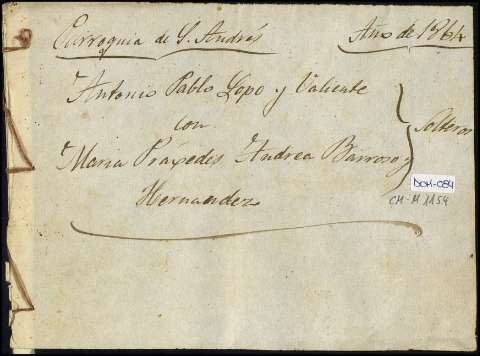 Parroquia de S. Andrés
Año de 1864
Antonio Pablo Lopo y Valiente
con
Solteros
María Práxedes Andrea Barroso y
Hernandez
DOM-084
CM-M 1154